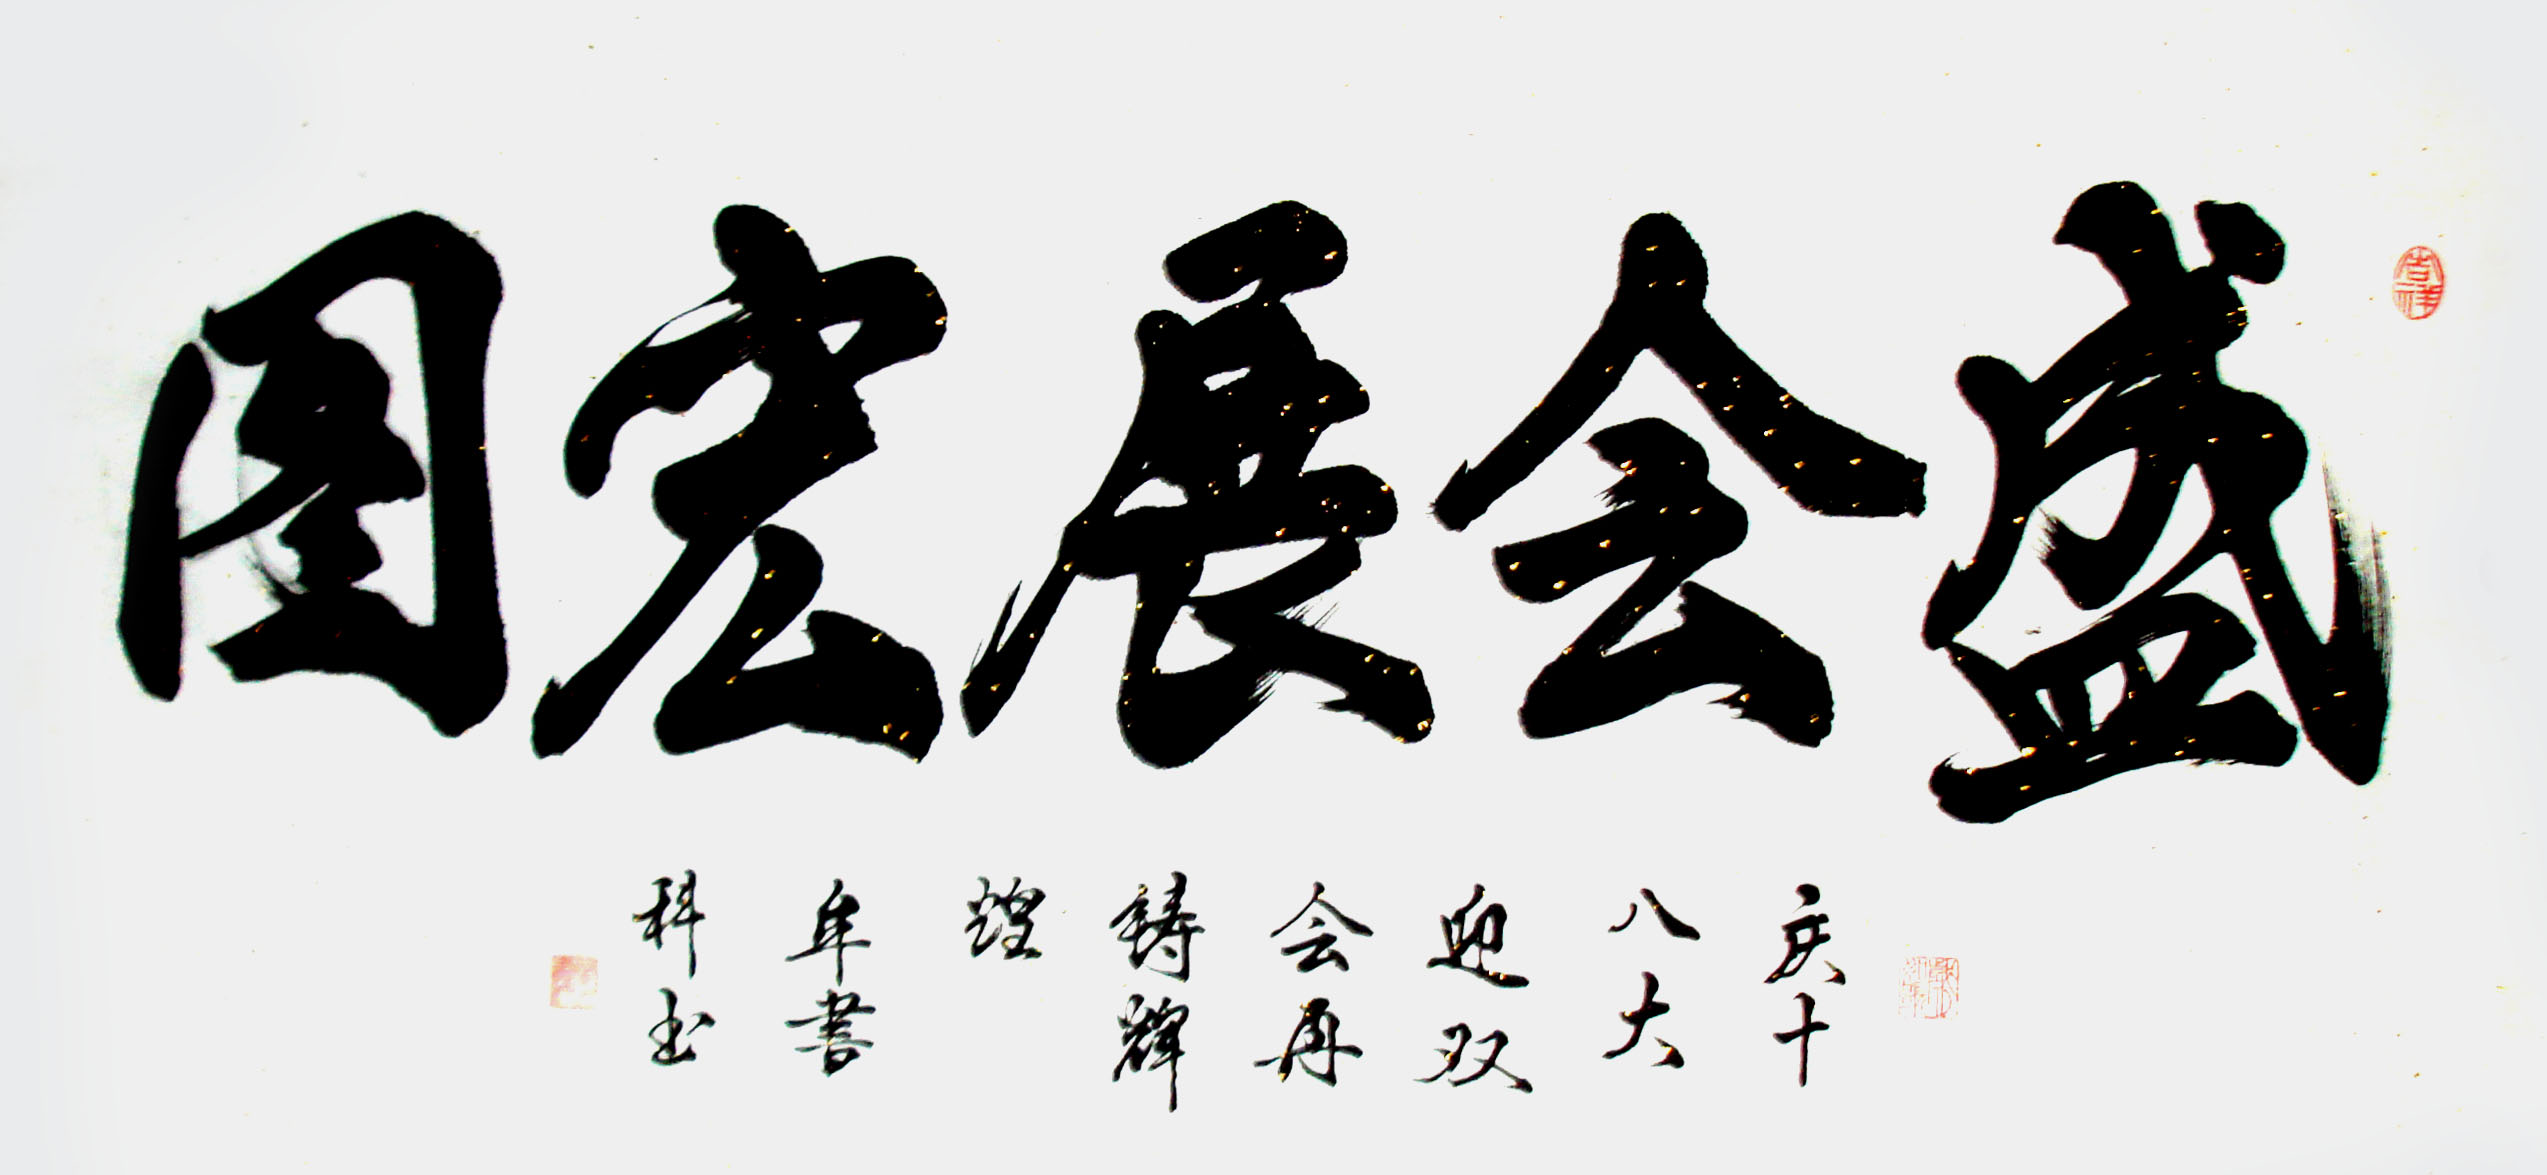 盛会展宏图
庆十
八大
迎双
会再
铸辉
煌
牟書
科书
吉祥